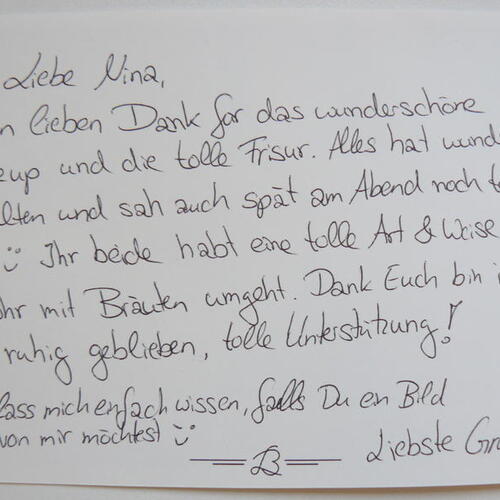 Liebe Nina,
n lieben Dank für das wunderschöne
eup und die tolle Frisur. Alles hat wund
lten und sah auch spät am Abend noch t
Ihr beide habt eine tolle Art & Weise
ihr mit Bräuten umgeht. Dank Euch bin i
ruhig geblieben, tolle Unterstützung!
lass mich einfach wissen, falls Du ein Bild
von mir möchtest
Liebste Gr
B